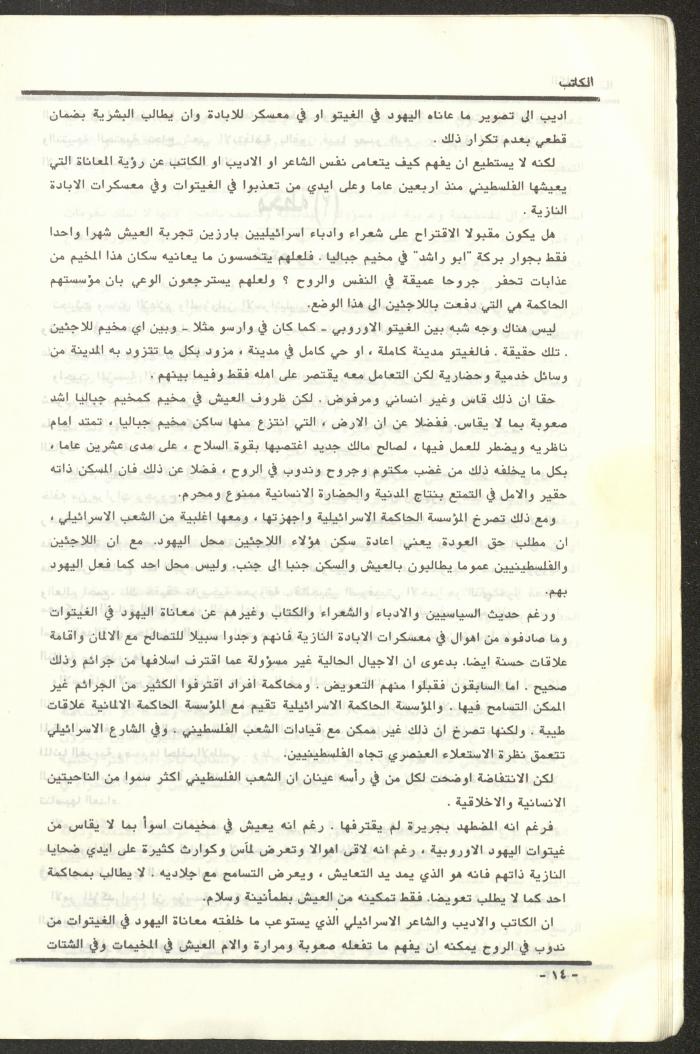 الكاتب
اديب الى تصوير ما عاناه اليهود في الغيتو او في معسكر للابادة وان يطالب البشرية بضمان
قطعي بعدم تكرار ذلك .
لكنه لا يستطيع ان يفهم كيف يتعامى نفس الشاعر او الاديب او الكاتب عن رؤية المعاناة التي
يعيشها الفلسطيني منذ اربعين عاما وعلى ايدي من تعذبوا في الغيتوات وفي معسكرات الابادة
النازية .
هل يكون مقبولا الاقتراح على شعراء وادباء اسرائيليين بارزين تجربة العيش شهرا واحدا
فقط بجوار بركة "ابو راشد" في مخيم جباليا . فلعلهم يتحسسون ما يعانيه سكان هذا المخيم من
عذابات تحفر جروحا عميقة في النفس والروح ؟ ولعلهم يسترجعون الوعي بان مؤسستهم
الحاكمة هي التي دفعت باللاجئين الى هذا الوضع.
ليس هناك وجه شبه بين الغيتو الاوروبي ـ كما كان في وارسو مثلا ـ وبين اي مخيم للاجئين
. تلك حقيقة . فالغيتو مدينة كاملة ، او حي كامل في مدينة ، مزود بكل ما تتزود به المدينة من
وسائل خدمية وحضارية لكن التعامل معه يقتصر على اهله فقط وفيما بينهم .
حقا ان ذلك قاس وغير انساني ومرفوض . لكن ظروف العيش في مخيم كمخيم جباليا اشد
صعوبة بما لا يقاس. ففضلا عن ان الارض ، التي انتزع منها ساكن مخيم جباليا ، تمتد امام
ناظريه ويضطر للعمل فيها ، لصالح مالك جديد اغتصبها بقوة السلاح ، على مدى عشرين عاما ،
بكل ما يخلفه ذلك من غضب مكتوم وجروح وندوب في الروح ، فضلا عن ذلك فان المسكن ذاته
حقير والامل في التمتع بنتاج المدنية والحضارة الانسانية ممنوع ومحرم.
ومع ذلك تصرخ المؤسسة الحاكمة الاسرائيلية واجهزتها ، ومعها اغلبية من الشعب الاسرائيلي ،
ان مطلب حق العودة يعني اعادة سكن هؤلاء اللاجئين محل اليهود. مع ان اللاجئين
والفلسطينيين عموما يطالبون بالعيش والسكن جنبا الى جنب. وليس محل احد كما فعل اليهود
بهم.
ورغم حديث السياسيين والادباء والشعراء والكتاب وغيرهم عن معاناة اليهود في الغيتوات
وما صادفوه من اهوال في معسكرات الابادة النازية فانهم وجدوا سبيلا للتصالح مع الالمان واقامة
علاقات حسنة ايضا. بدعوى ان الاجيال الحالية غير مسؤولة عما اقترف اسلافها من جرائم وذلك
صحيح . اما السابقون فقبلوا منهم التعويض . ومحاكمة افراد اقترفوا الكثير من الجرائم غير
الممكن التسامح فيها . والمؤسسة الحاكمة الاسرائيلية تقيم مع المؤسسة الحاكمة الالمانية علاقات
طيبة . ولكنها تصرخ ان ذلك غير ممكن مع قيادات الشعب الفلسطيني . وفي الشارع الاسرائيلي
تتعمق نظرة الاستعلاء العنصري تجاه الفلسطينيين.
لكن الانتفاضة اوضحت لكل من في رأسه عينان ان الشعب الفلسطيني اكثر سموا من الناحيتين
الانسانية والاخلاقية .
فرغم انه المضطهد بجريرة لم يقترفها . رغم انه يعيش في مخيمات اسوأ بما لا يقاس من
غيتوات اليهود الاوروبية ، رغم انه لاقى اهوالا وتعرض لمآس وكوارث كثيرة على ايدي ضحايا
النازية ذاتهم فانه هو الذي يمد يد التعايش ، ويعرض التسامح مع جلاديه . لا يطالب بمحاكمة
احد كما لا يطلب تعويضا. فقط تمكينه من العيش بطمأنينة وسلام.
ان الكاتب والاديب والشاعر الاسرائيلي الذي يستوعب ما خلفته معاناة اليهود في الغيتوات من
ندوب في الروح يمكنه ان يفهم ما تفعله صعوبة ومرارة والام العيش في المخيمات وفي الشتات
- ١٤ -